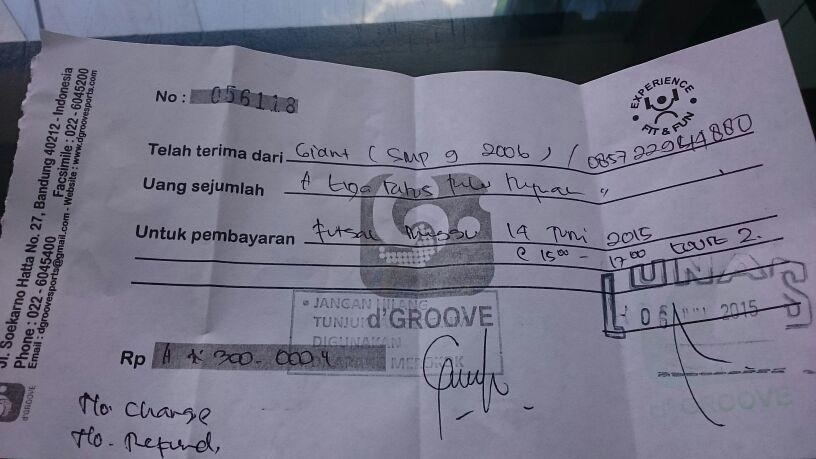 Jl. Soekarno Hatta No. 27, Bandung 40212 - Indonesia
Phone : 022 - 6045400 Facsimile : 022 - 6045200
Email : dgroovesports@gmail.com - Website : www.dgroovesports.com
d'GROOVE
No : 056118
EXPERIENCE
FIT & FUN
Telah terima dari Giant (SMP 9 2006) /
Uang sejumlah # tiga ratus ribu rupiah "
Untuk pembayaran Futsal Minggu 14 Juni 2015
@ 15.00 - 17.00 COURT 2.
LUNAS
06 2015
JANGAN HILANG
TUNJU
d'GROOVE
DIGUNAKAN
Rp # 300.000 #
d'GROOVE
No. Change
No. Refund.